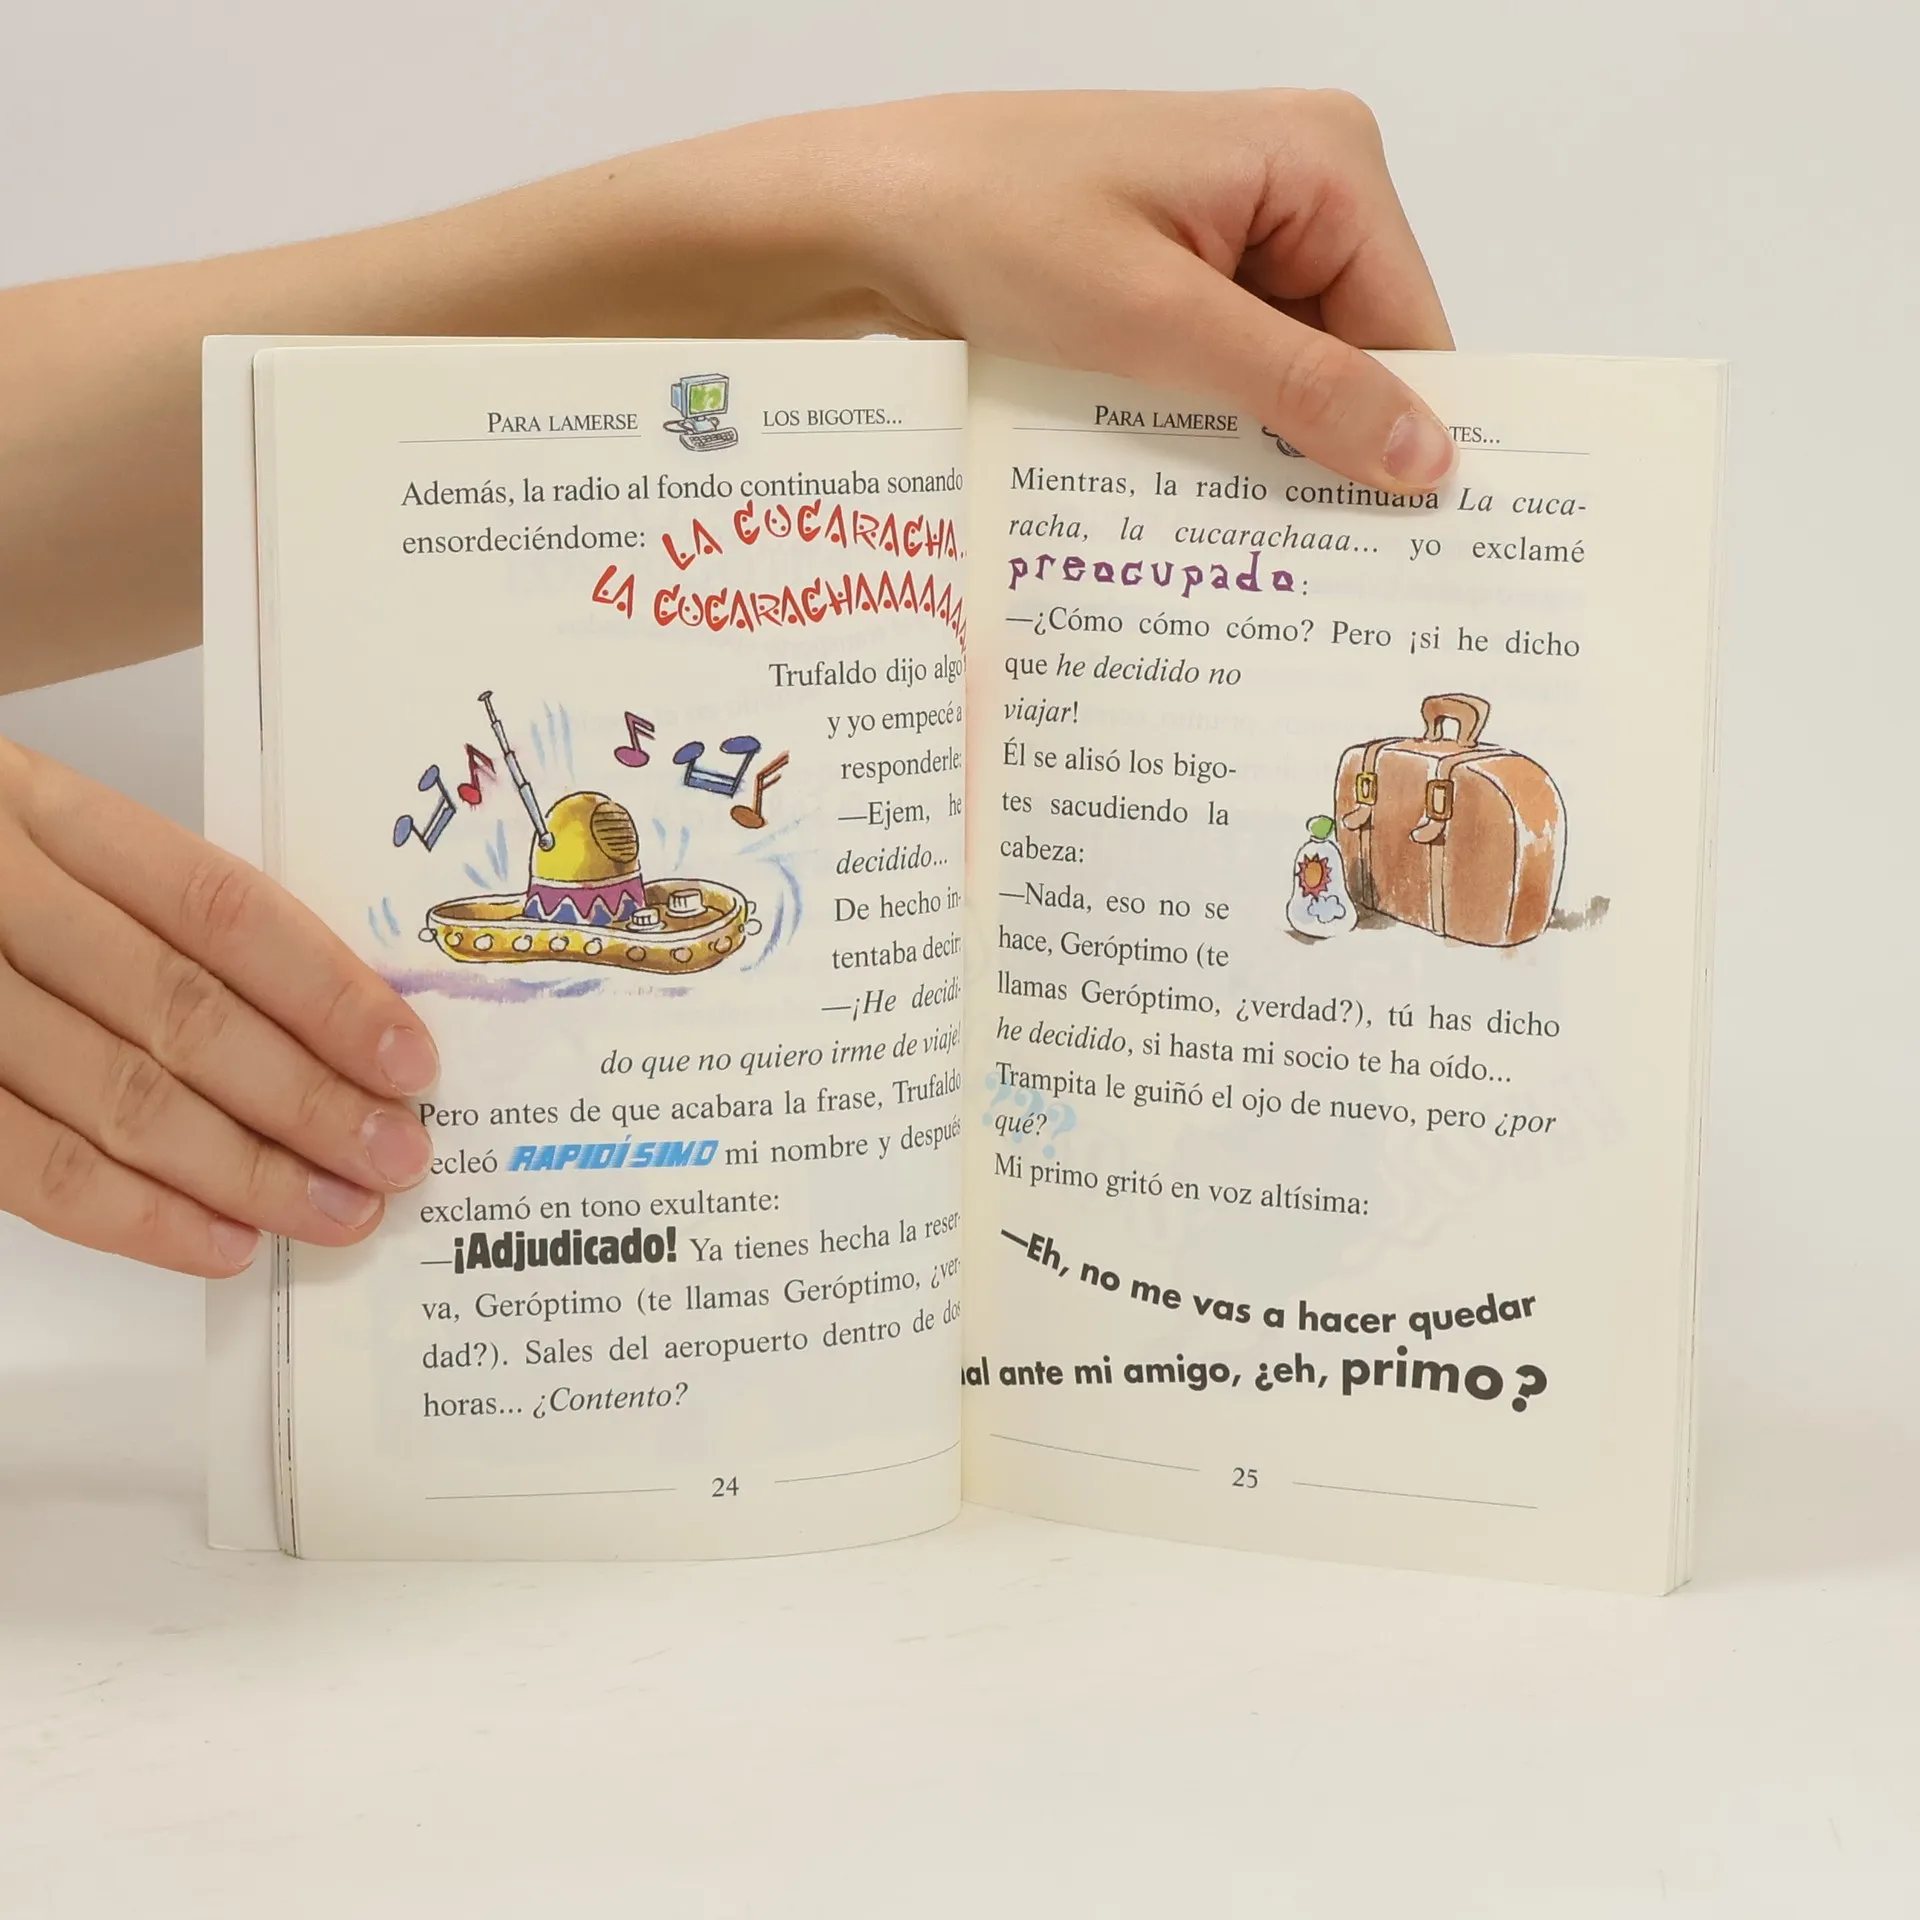 PARA LAMERSE LOS BIGOTES...
Además, la radio al fondo continuaba sonando
ensordeciéndome: LA CUCARACHA..
LA CUCARACHAAAAAA
Trufaldo dijo algo
y yo empecé a
responderle:
—Ejem, he
decidido...
De hecho in-
tentaba decir:
—¡He decidi-
do que no quiero irme de viaje!
Pero antes de que acabara la frase, Trufaldo
ecleó RAPIDÍSIMO mi nombre y después
exclamó en tono exultante:
—¡Adjudicado! Ya tienes hecha la reser-
va, Geróptimo (te llamas Geróptimo, ¿ver-
dad?). Sales del aeropuerto dentro de dos
horas... ¿Contento?
24
PARA LAMERSE TES...
Mientras, la radio continuaba La cuca-
racha, la cucarachaaa... yo exclamé
preocupado:
—¿Cómo cómo cómo? Pero ¡si he dicho
que he decidido no
viajar!
Él se alisó los bigo-
tes sacudiendo la
cabeza:
—Nada, eso no se
hace, Geróptimo (te
llamas Geróptimo, ¿verdad?), tú has dicho
he decidido, si hasta mi socio te ha oído...
Trampita le guiñó el ojo de nuevo, pero ¿por
qué?
???
Mi primo gritó en voz altísima:
—Eh, no me vas a hacer quedar
al ante mi amigo, ¿eh, primo?
25